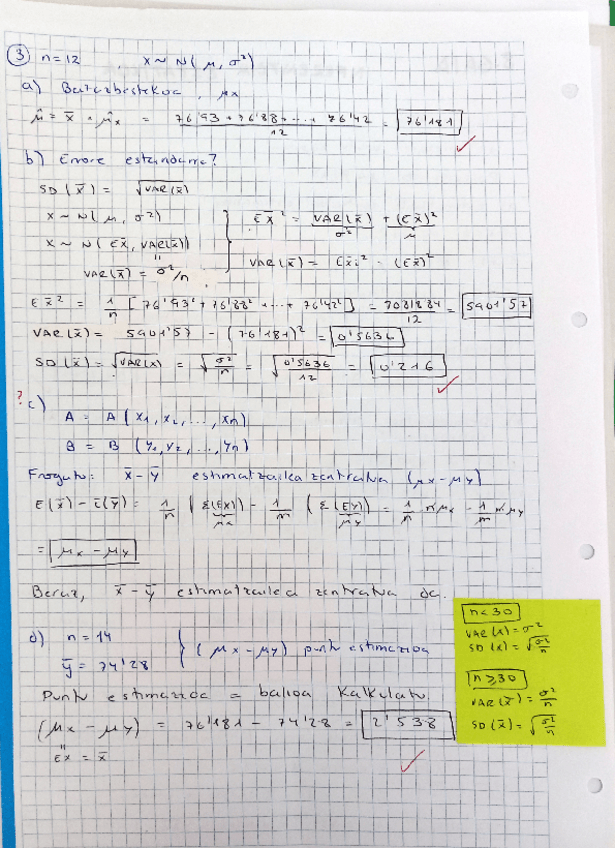 ③ n=12 , X ~ N(μ, σ²)
a) Batezbestekoa, μx
μ̂ = x̄ = μ̂x = (76'93 + 76'88 + ... + 76'42) / 12 = 76'181 ✓
b) Errore estandarra?
SD(x̄) = √VAR(x̄)
X ~ N(μ, σ²)
X ~ N(Ex̄, VAR(x̄))
VAR(x̄) = σ²/n
Ex̄² = VAR(x̄) + (Ex̄)²
σ² μ
VAR(x̄) = Exi² - (Ex̄)²
Ex̄² = 1/n [76'93² + 76'88² + ... + 76'42²] = 70818'84 / 12 = 5901'57
VAR(x̄) = 5901'57 - (76'181)² = 0'5636
SD(x̄) = √VAR(x) = √(σ²/n) = √(0'5636/12) = 0'216 ✓
? c)
A = A (x1, x2, ..., xn)
B = B (y1, y2, ..., yn)
Frogatu: x̄ - ȳ estimatzailea zentratua (μx - μy)
E(x̄) - E(ȳ) = 1/n (Σ(EX)) - 1/m (Σ(EY)) = 1/n n μx - 1/m m μy
μx μy
= μx - μy
Beraz, x̄ - ȳ estimatzailea zentratua da.
d) n = 14
ȳ = 74'28
} (μx - μy) puntu estimazioa
Puntu estimazioa = balioa kalkulatu.
(μx - μy) = 76'181 - 74'28 = 2'538
EX = x̄ ✓
n < 30
VAR(x) = σ²
SD(x) = √(σ²/n)
n ≥ 30
VAR(x̄) = σ²/n
SD(x̄) = √(σ²/n)